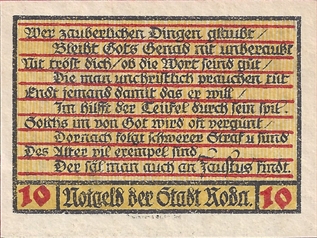 Wer zauberlichen Dingen glaubt /
Bleibt Gots Genad nit unberaubt
Nit tröst dich / ob die Wort seind gut /
Die man unchristlich prauchen tut
Endt jemand damit das er will /
Im hilfft der Teufel durch sein spil.
Solchs im von Got wird oft vergunt /
Dornach folgt schwerer Straf u sund
Des Alter vil exempel sind
Der fäl man auch an Faustus findt.
10 Notgeld der Stadt Roda. 10